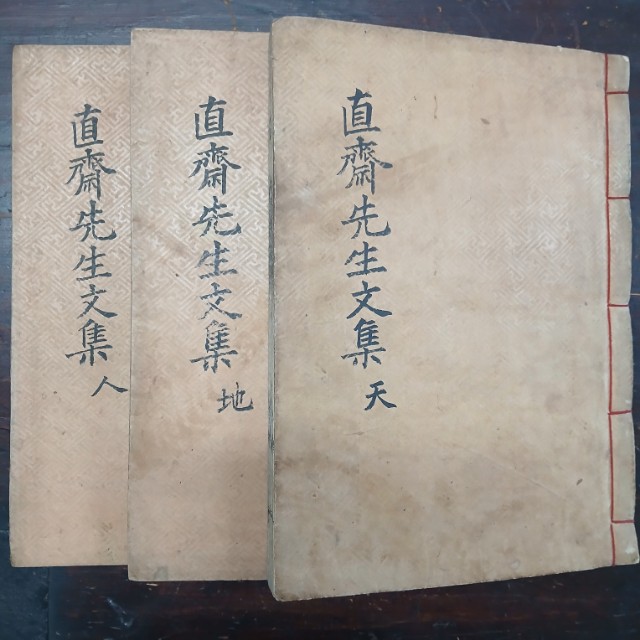 直齋先生文集
天
直齋先生文集
地
直齋先生文集
人